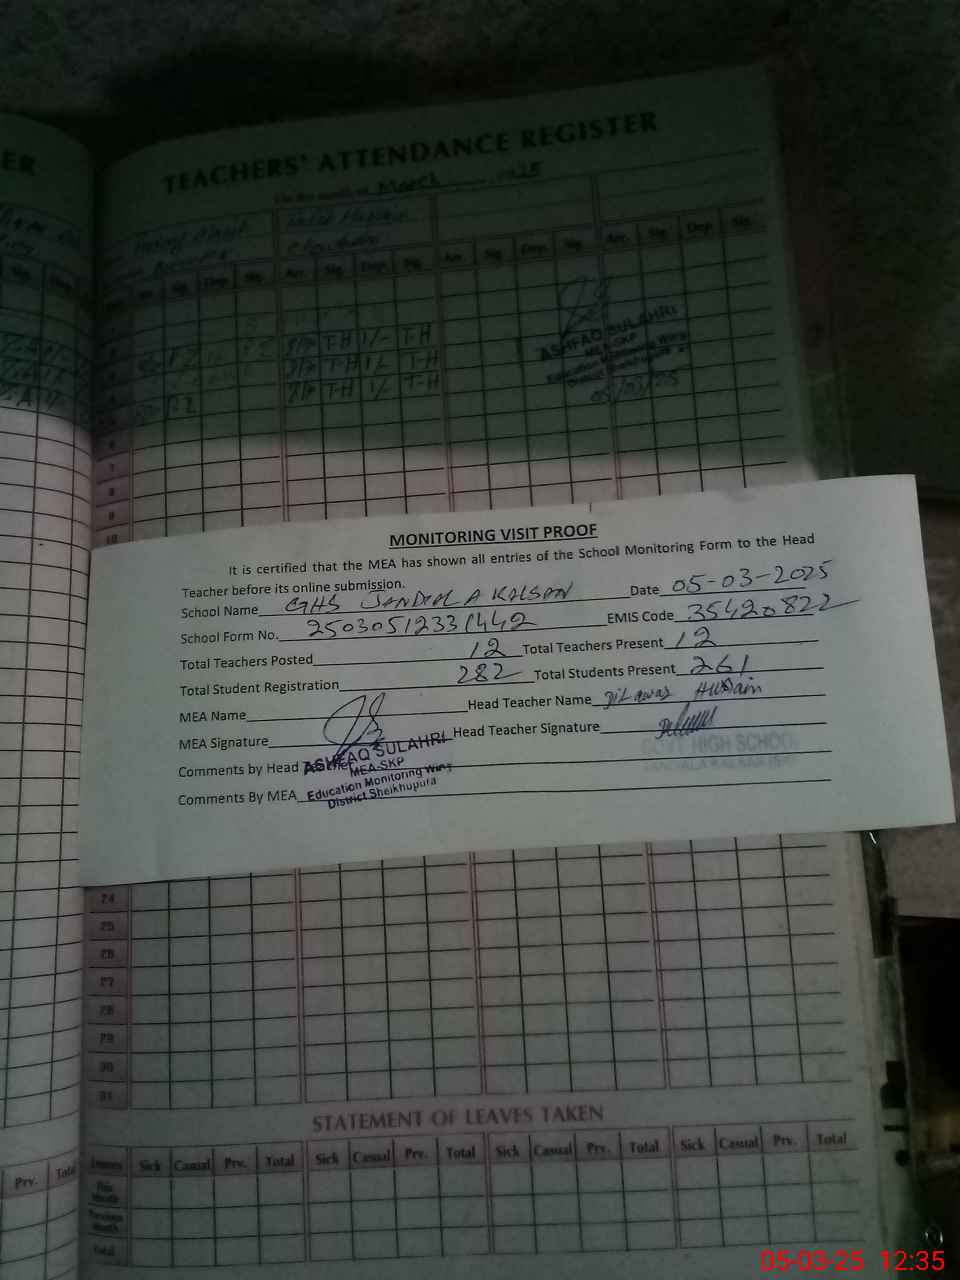 ER
TEACHERS' ATTENDANCE REGISTER
March 2025
Arr. Sig. Dep. Sig. Arr. Sig. Dep. Sig. Arr. Sig. Dep. Sig.
T-H 1/- T-H
T-H 1/- T-H
T-H 1/- T-H
ASHFAQ SULAHRI
MEA-SKP
Education Monitoring Wing
District Sheikhupura
05/03/25
6
7
8
9
10
MONITORING VISIT PROOF
It is certified that the MEA has shown all entries of the School Monitoring Form to the Head
Teacher before its online submission.
School Name GHS JANDIALA KALSAN Date 05-03-2025
School Form No. 25030512331442 EMIS Code 35420822
Total Teachers Posted 12 Total Teachers Present 12
Total Student Registration 282 Total Students Present 261
MEA Name Head Teacher Name Dilawar Hussain
MEA Signature Head Teacher Signature
Comments by Head Teacher
Comments By MEA
ASHFAQ SULAHRI
MEA-SKP
Education Monitoring Wing
District Sheikhupura
GOVT HIGH SCHOOL
24
25
26
27
28
29
30
31
STATEMENT OF LEAVES TAKEN
Prv. Total
Leaves Sick Casual Prv. Total Sick Casual Prv. Total Sick Casual Prv. Total Sick Casual Prv. Total
This Month
Previous Month
Total
05-03-25 12:35